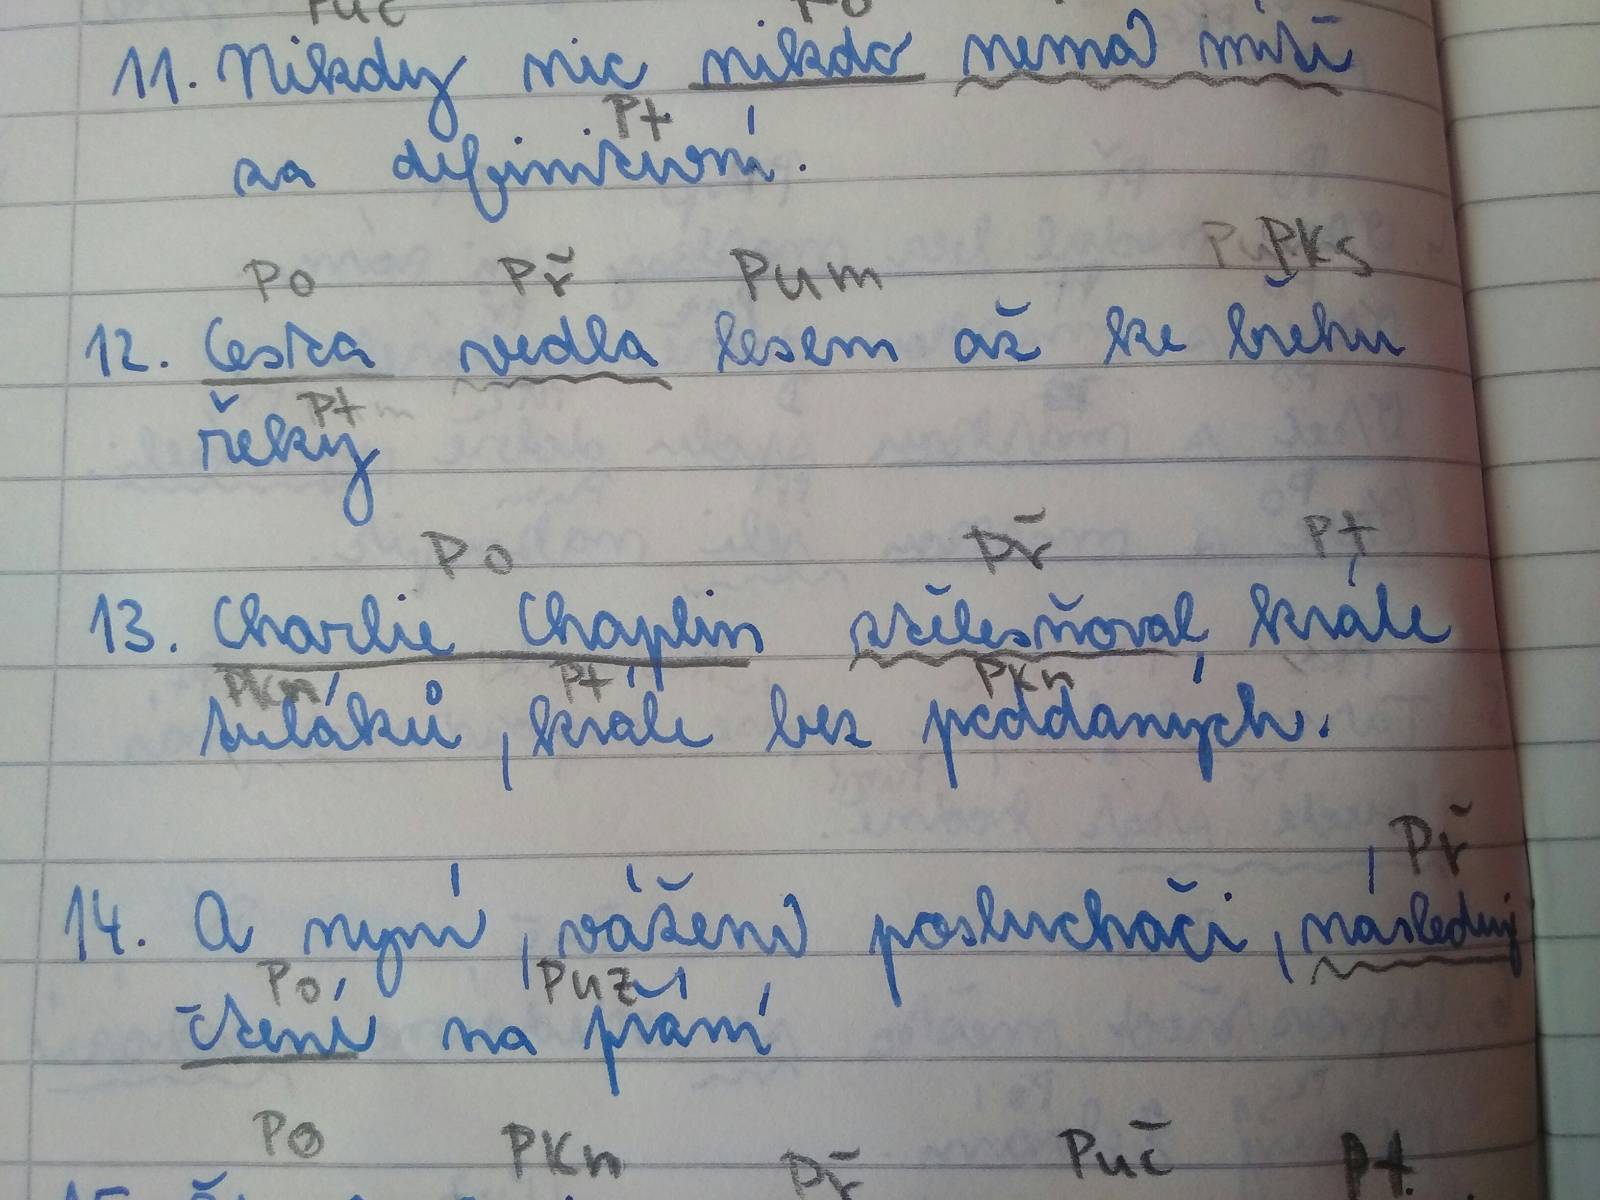 Puč Po
11. Nikdy nic nikdo nemá míti
Pt
za definitivní.
Po Př Pum PKs
12. Cesta vedla lesem až ke břehu
Pt
řeky
Po Př Pt
13. Charlie Chaplin ztělesňoval krále
PKn Pt PKn
tuláků, krále bez poddaných.
Př
14. A nyní, vážení posluchači, následuj
Po Puz
čtení na přání
Po PKn Př Puč Pt